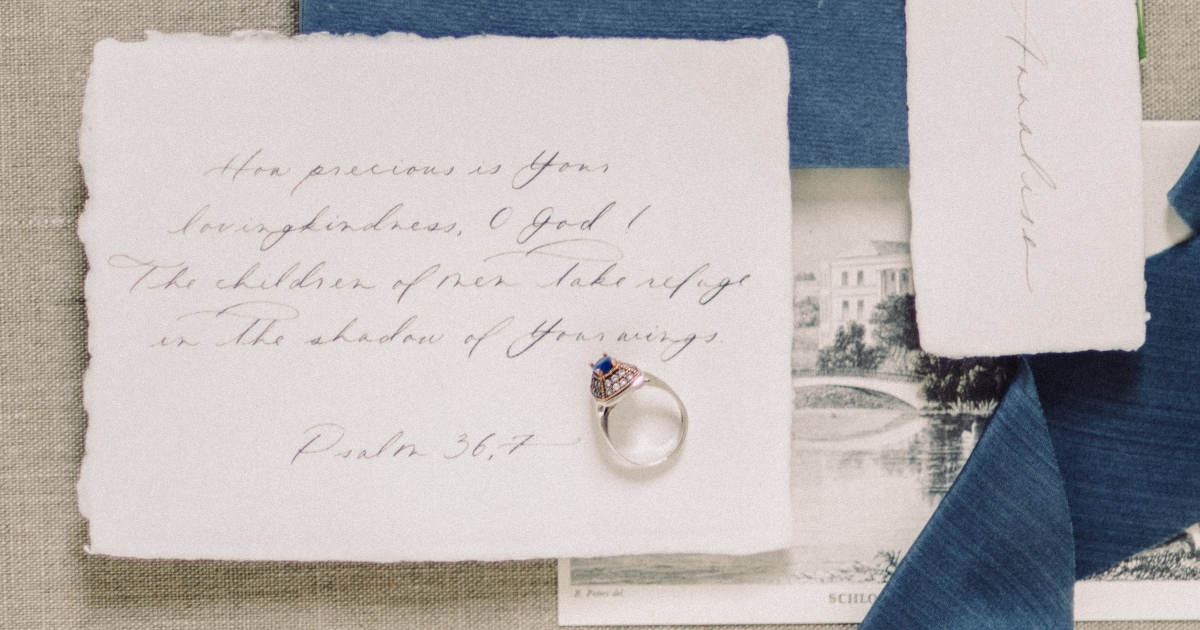 How precious is Your
lovingkindness, O God!
The children of men take refuge
in the shadow of Your wings.
Psalm 36,7
Annalisa
SCHLO